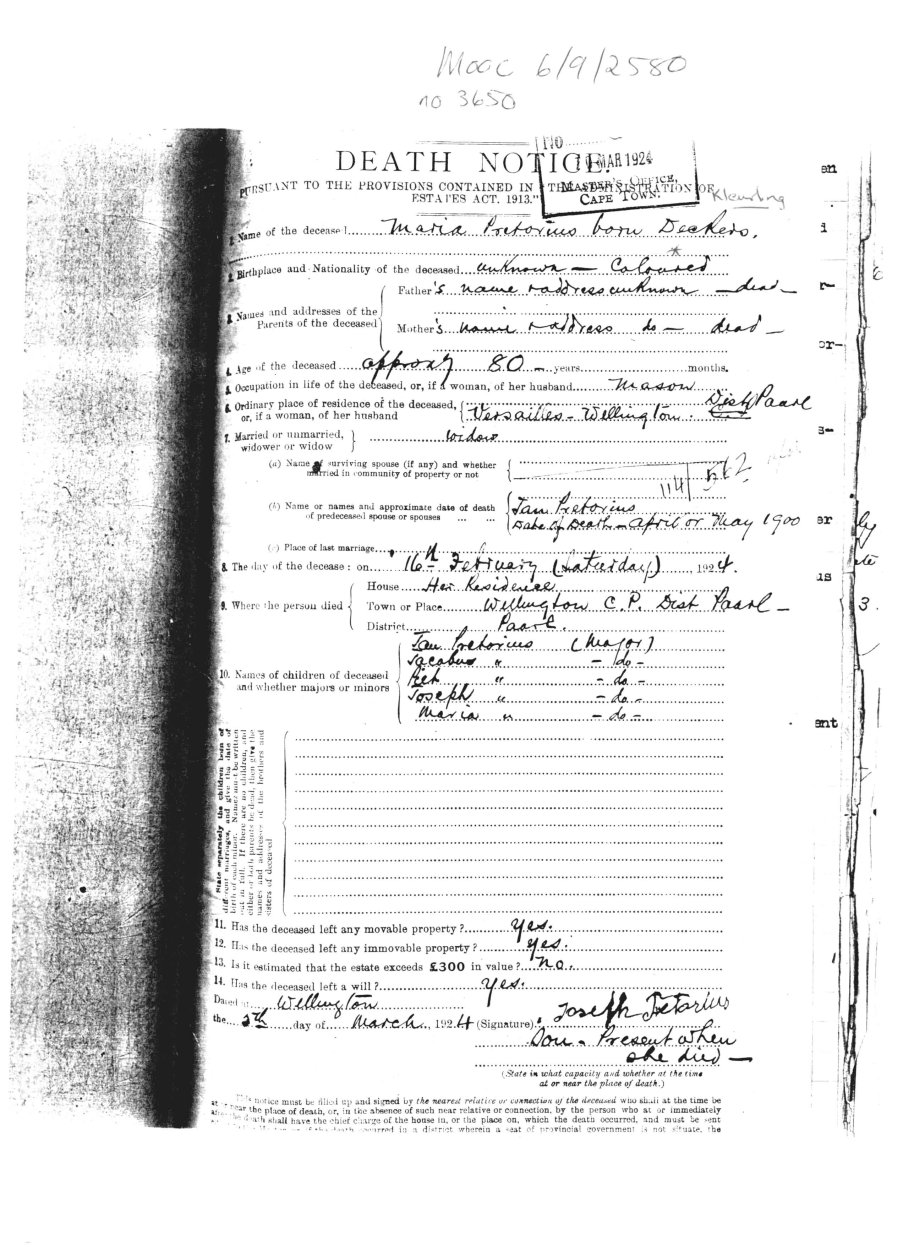 MOOC 6/9/2580
no 3650
NO
10 MAR 1924
MASTER'S OFFICE,
CAPE TOWN.
DEATH NOTICE.
PURSUANT TO THE PROVISIONS CONTAINED IN "THE ADMINISTRATION OF
ESTATES ACT. 1913."
Kleurling
1. Name of the deceased Maria Pretorius born Deckers.
2. Birthplace and Nationality of the deceased unknown — Coloured
3. Names and addresses of the
Parents of the deceased
Father's name & address unknown — dead —
Mother's name & address do — dead —
4. Age of the deceased approxy 80 — years months.
5. Occupation in life of the deceased, or, if a woman, of her husband Mason
6. Ordinary place of residence of the deceased,
or, if a woman, of her husband
Versailles - Wellington. Dist Paarl
7. Married or unmarried,
widower or widow
widow
(a) Name of surviving spouse (if any) and whether
married in community of property or not
114/512
(b) Name or names and approximate date of death
of predeceased spouse or spouses ... ...
Jan Pretorius
Date of Death — April or May 1900
(c) Place of last marriage
8. The day of the decease: on 16th February (Saturday) 1924.
9. Where the person died
House Her Residence
Town or Place Wellington C.P. Dist Paarl —
District Paarl.
10. Names of children of deceased
and whether majors or minors
Jan Pretorius (Major)
Jacobus " - do -
Piet " - do -
Joseph " - do -
Maria " - do -
State separately the children born of
different marriages, and give the date of
birth of each minor. Names must be written
out in full. If there are no children, and
either or both parents be dead, then give the
names and addresses of the brothers and
sisters of deceased
11. Has the deceased left any movable property? yes.
12. Has the deceased left any immovable property? yes.
13. Is it estimated that the estate exceeds £300 in value? No.
14. Has the deceased left a will? yes.
Dated at Wellington
the 5th day of March, 1924 (Signature). Joseph Pretorius
Son - Present when
she died —
(State in what capacity and whether at the time
at or near the place of death.)
This notice must be filled up and signed by the nearest relative or connection of the deceased who shall at the time be
at or near the place of death, or, in the absence of such near relative or connection, by the person who at or immediately
death shall have the chief charge of the house in, or the place on, which the death occurred, and must be sent
of the death occurred in a district wherein a seat of provincial government is not situate, the
en
i
r-
or-
s-
er
is
ent
ly
ate
3.